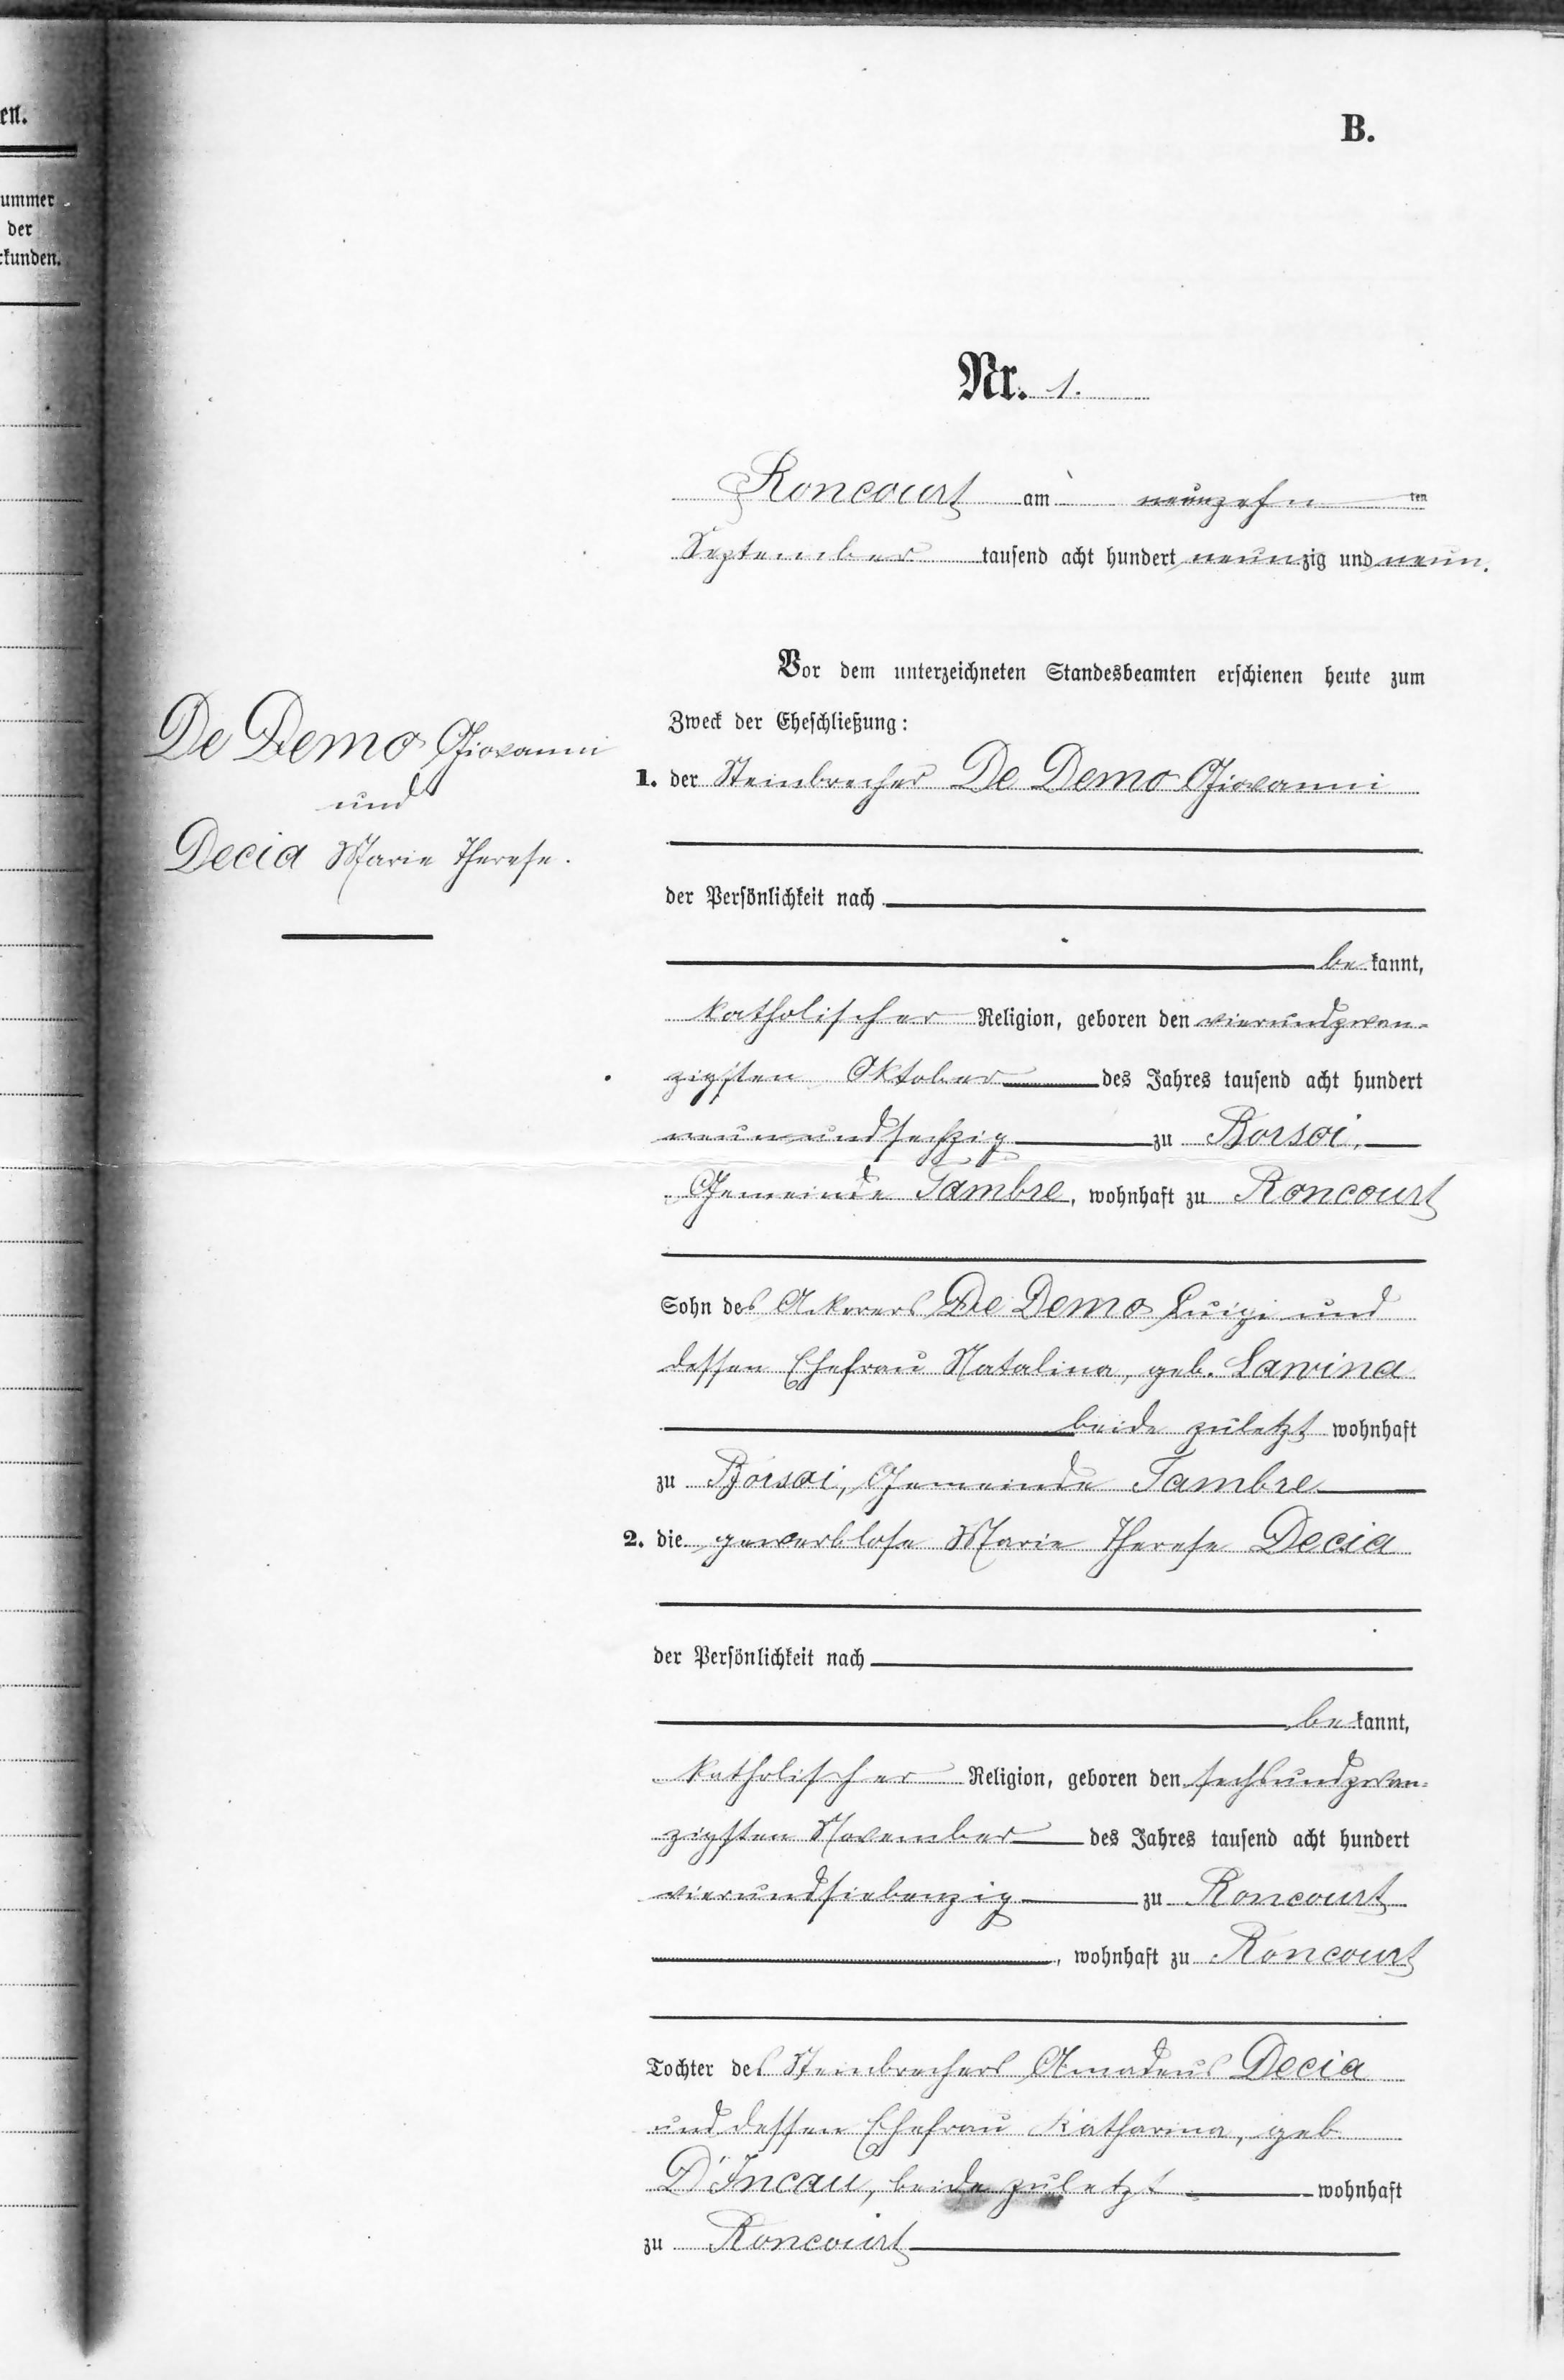 en.
ummer
der
rkunden.
B.
Nr. 1.
Roncourt am neunzehn ten
September tausend acht hundert neunzig und neun.
De Demo Giovanni
und
Decia Marie Therese.
Vor dem unterzeichneten Standesbeamten erschienen heute zum
Zweck der Eheschließung:
1. der Steinbrecher De Demo Giovanni
der Persönlichkeit nach
be kannt,
katholischer Religion, geboren den vierundzwan-
zigsten Oktober des Jahres tausend acht hundert
neunundsechzig zu Borsoi,
Gemeinde Tambre, wohnhaft zu Roncourt
Sohn des Ackerers De Demo Luigi und
dessen Ehefrau Natalina, geb. Lavina
beide zuletzt wohnhaft
zu Borsoi, Gemeinde Tambre
2. die gewerblose Marie Therese Decia
der Persönlichkeit nach
be kannt,
katholischer Religion, geboren den sechsundzwan-
zigsten November des Jahres tausend acht hundert
vierundsiebenzig zu Roncourt
, wohnhaft zu Roncourt
Tochter des Steinbrechers Amadeus Decia
und dessen Ehefrau Katharina, geb.
D'Incau, beide zuletzt wohnhaft
zu Roncourt